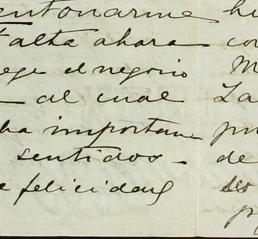 entonarme
falta ahora
ege el negocio
al cual
ha importan
sentidos -
e felicidad
La
de